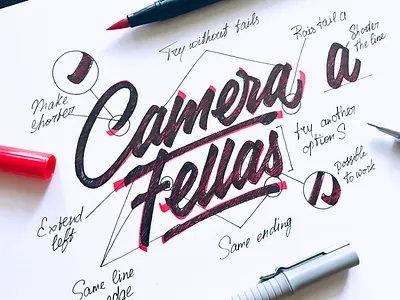 Try without tails
Rais tail a
Shorter
the line
a
Make
shorter
Camera
Fellas
try another
option S
possible
to work
Extend
left
Same ending
Same line
edge